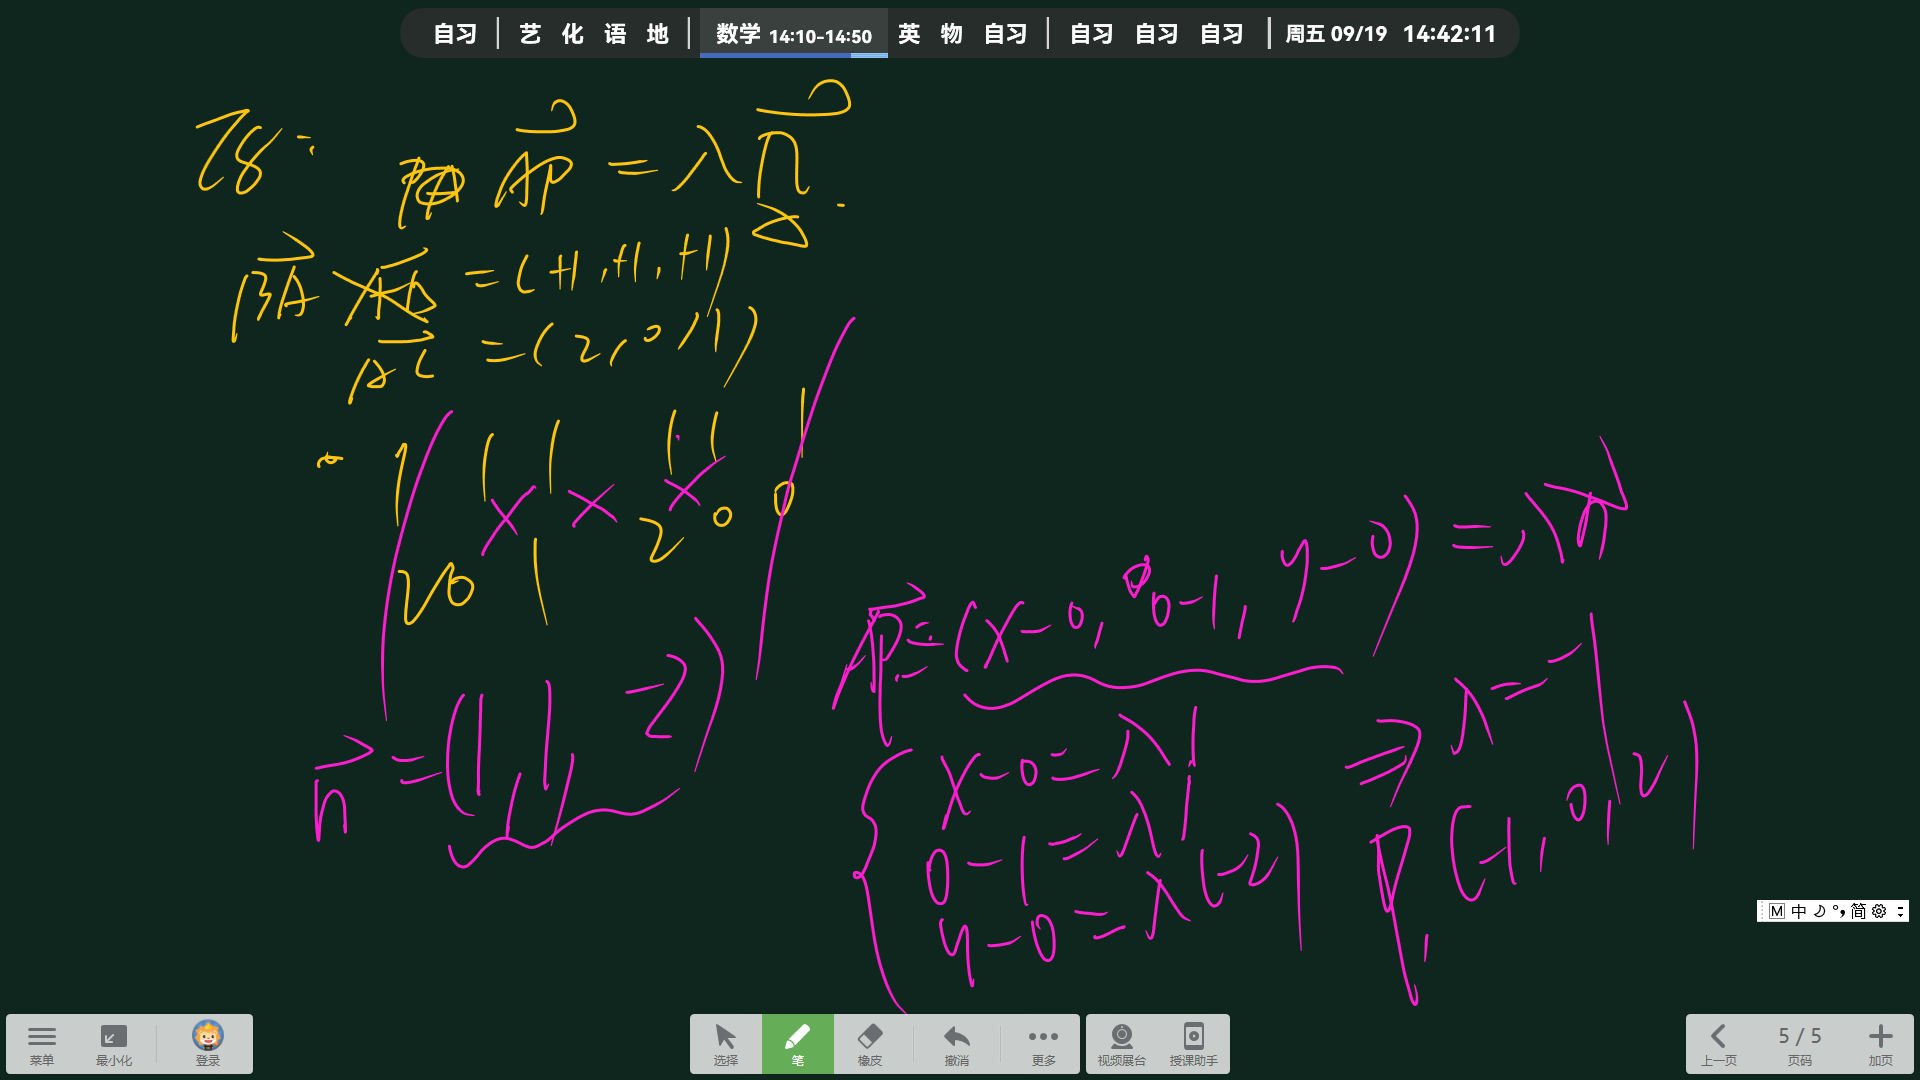 自习 | 艺 化 语 地 | 数学 14:10-14:50 英 物 自习 | 自习 自习 自习 | 周五 09/19 14:42:11
T8:
AP = λn
BA = (+1, +1, +1)
AC = (2, 0, 1)
1 1 1 1 1 1
2 0 1 2 0 0
n = (1, 1, -2)
AP = (x-0, 0-1, y-0) = λn
x-0 = λ1
0-1 = λ1
y-0 = λ(-2)
⇒ λ = -1
P(-1, 0, 2)
M 中 简
菜单 最小化 登录
选择 笔 橡皮 撤消 更多
视频展台 授课助手
上一页 5 / 5 页码 加页